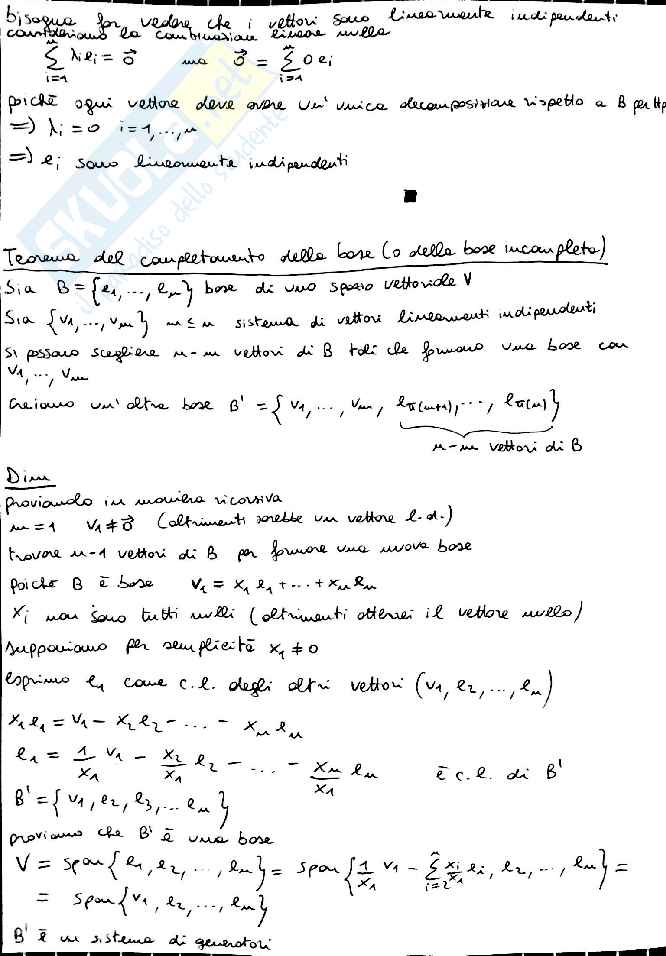 bisogna far vedere che i vettori sono linearmente indipendenti
consideriamo la combinazione lineare nulla
∑_{i=1}^{n} λi ei = 0⃗ ma 0⃗ = ∑_{i=1}^{n} 0 ei
poichè ogni vettore deve avere un'unica decomposizione rispetto a B per Hp
=> λi = 0 i = 1,...,n
=> ei sono linearmente indipendenti
■
Teorema del completamento della base (o della base incompleta)
Sia B = {e1, ..., en} base di uno spazio vettoriale V
Sia {v1, ..., vm} m ≤ n sistema di vettori linearmenti indipendenti
si possono scegliere n-m vettori di B tali che formano una base con
v1, ..., vm
Creiamo un'altra base B' = {v1, ..., vm, eπ(m+1), ..., eπ(n)}
n-m vettori di B
Dim
proviamolo in maniera ricorsiva
m = 1 v1 ≠ 0⃗ (altrimenti sarebbe un vettore l.d.)
trovare n-1 vettori di B per formare una nuova base
poichè B è base v1 = x1 e1 + ... + xn en
xi non sono tutti nulli (altrimenti otterrei il vettore nullo)
supponiamo per semplicità x1 ≠ 0
esprimo e1 come c.l. degli altri vettori (v1, e2, ..., en)
x1 e1 = v1 - x2 e2 - ... - xn en
e1 = 1/x1 v1 - x2/x1 e2 - ... - xn/x1 en è c.l. di B'
B' = {v1, e2, e3, ... en}
proviamo che B' è una base
V = span{e1, e2, ..., en} = span{1/x1 v1 - ∑_{i=2}^{n} xi/x1 ei, e2, ..., en} =
= span{v1, e2, ..., en}
B' è un sistema di generatori
SKUOLA.net
il paradiso dello studente